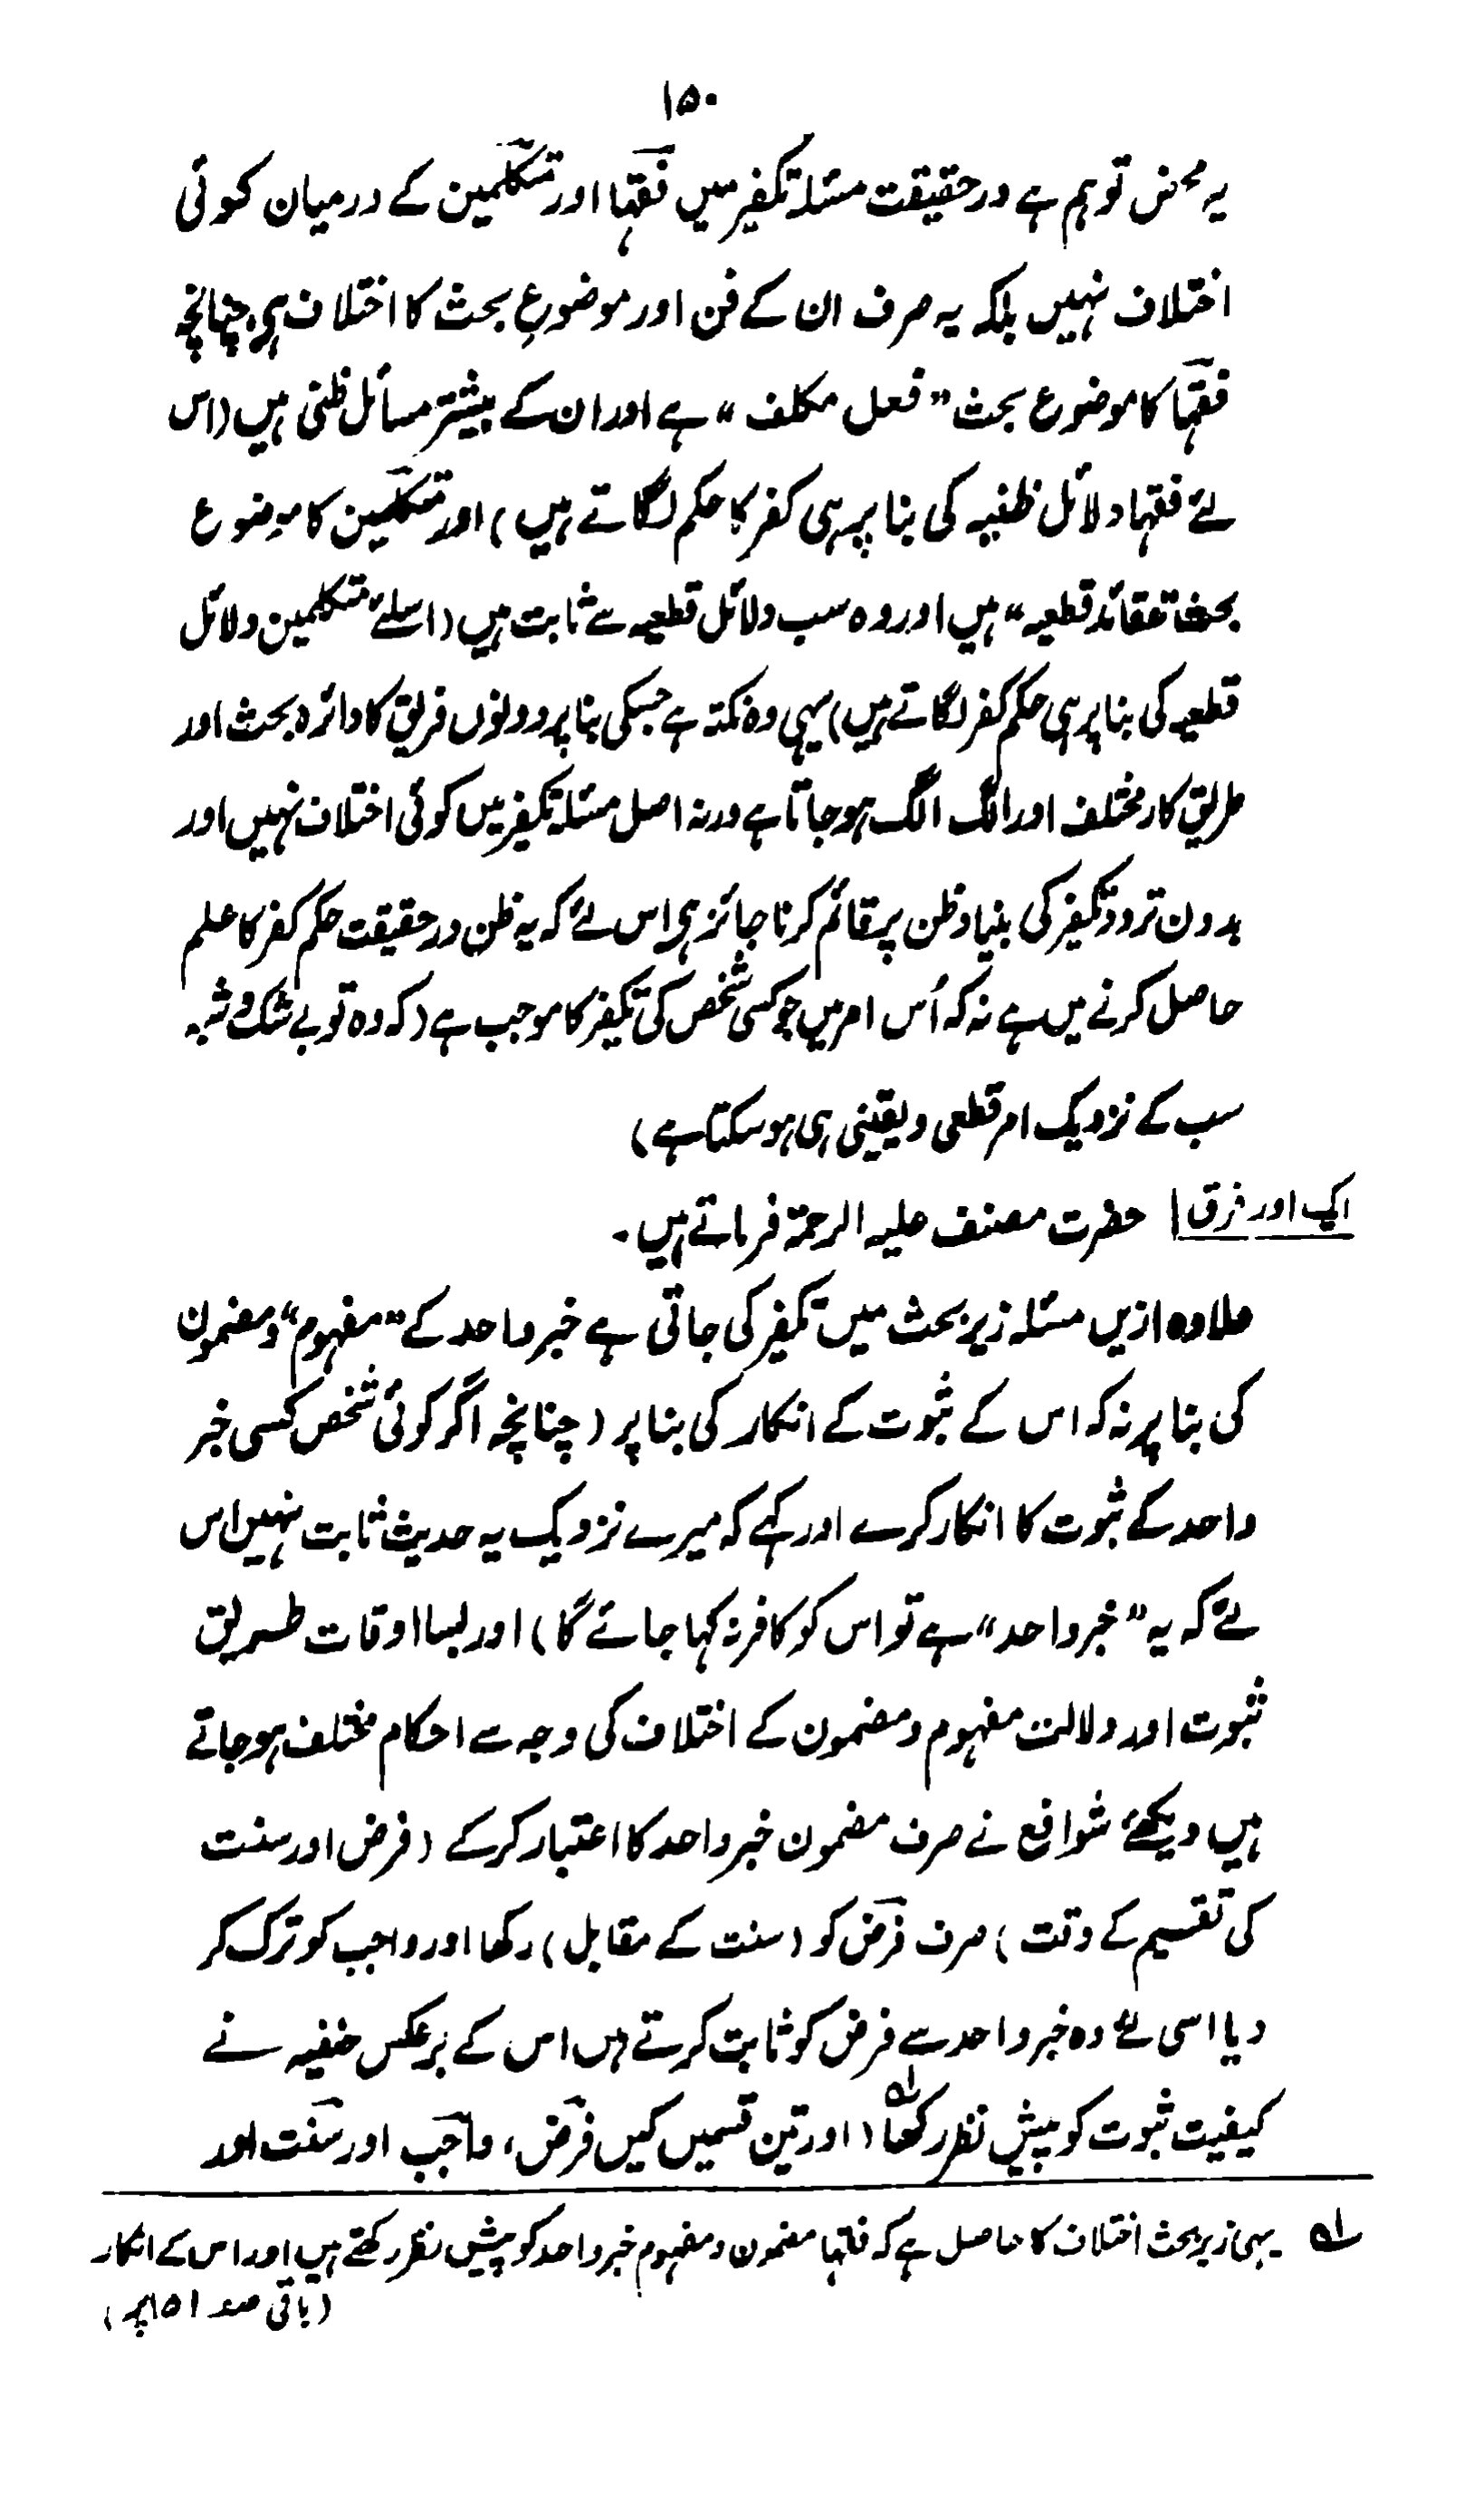 ۱۵۰
یہ محض توہم ہے درحقیقت مسئلہ تکفیر میں فقہا اور متکلمین کے درمیان کوئی
اختلاف نہیں بلکہ یہ صرف ان کے فن اور موضوعِ بحث کا اختلاف ہی، چنانچہ
فقہا کا موضوع بحث ”فعل مکلف“ ہے اور ان کے بیشتر مسائل ظنی ہیں (اس
لئے فقہا دلائل ظنیہ کی بنا پر ہی کفر کا حکم لگاتے ہیں) اور متکلمین کا موضوع
بحث ”عقائد قطعیہ“ ہیں اور وہ سب دلائل قطعیہ سے ثابت ہیں (اسلئے متکلمین دلائل
قطعیہ کی بنا پر ہی حکم کفر لگاتے ہیں) یہی وہ نکتہ ہے جسکی بنا پر دونوں فریق کا دائرہ بحث اور
طریق کار مختلف اور الگ الگ ہو جاتا ہے ورنہ اصل مسئلہ تکفیر میں کوئی اختلاف نہیں اور
بدون تردد تکفیر کی بنیاد ظن پر قائم کرنا جائز ہی اس لئے کہ یہ ظن درحقیقت حکم کفر کا علم
حاصل کرنے میں ہے نہ کہ اُس امر میں جو کسی شخص کی تکفیر کا موجب ہے (کہ وہ تو بے شک و شبہ
سب کے نزدیک امر قطعی و یقینی ہی ہو سکتا ہے)
ایک اور فرق | حضرت مصنف علیہ الرحمۃ فرماتے ہیں۔
علاوہ ازیں مسئلہ زیر بحث میں تکفیر کی جاتی ہے خبر واحد کے ”مفہوم“ و مضمون
کی بنا پر نہ کہ اس کے ثبوت کے انکار کی بنا پر (چنانچہ اگر کوئی شخص کسی خبر
واحد کے ثبوت کا انکار کرے اور کہے کہ میرے نزدیک یہ حدیث ثابت نہیں اس
لئے کہ یہ ”خبر واحد“ ہے تو اس کو کافر نہ کہا جائے گا) اور بسا اوقات طریق
ثبوت اور دلالت مفہوم و مضمون کے اختلاف کی وجہ سے احکام مختلف ہو جاتے
ہیں دیکھئے شوافع نے صرف مضمون خبر واحد کا اعتبار کر کے (فرض اور سنت
کی تقسیم کے وقت) صرف فرض کو (سنت کے مقابل) رکھا اور واجب کو ترک کر
دیا اسی لئے وہ خبر واحد سے فرض کو ثابت کرتے ہیں اس کے برعکس حنفیہ نے
کیفیت ثبوت کو پیش نظر رکھا ؎۱ (اور تین قسمیں کیں فرض، واجب اور سنت اور
؎۱ یہی زیر بحث اختلاف کا حاصل ہے کہ فقہا مضمون و مفہوم خبر واحد کو پیش نظر رکھتے ہیں اور اس کے انکار
(باقی صفحہ ۱۵۱ پر)